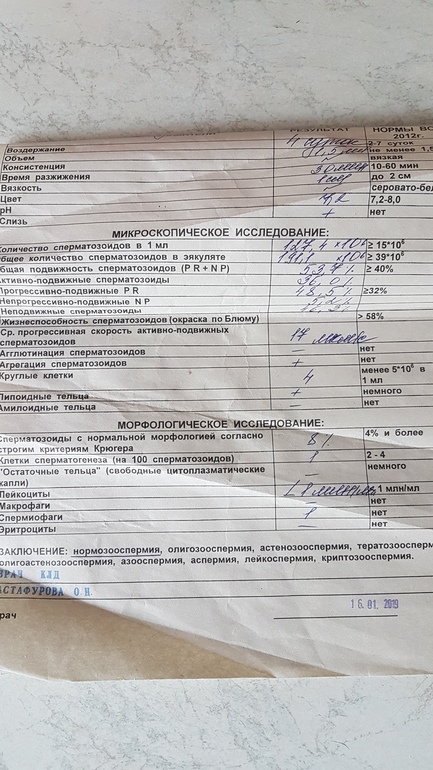 РЕЗУЛЬТАТ НОРМЫ ВО
2012г.
Воздержание 4 2-7 суток
Объем не менее 1,5
Консистенция вязкая
Время разжижения 30 мин 10-60 мин
Вязкость до 2 см
Цвет серовато-бел
рН 7,2-8,0
Слизь + нет
МИКРОСКОПИЧЕСКОЕ ИССЛЕДОВАНИЕ:
Количество сперматозоидов в 1 мл 127,4 х10⁶ ≥ 15*10⁶
бщее количество сперматозоидов в эякуляте х10⁶ ≥ 39*10⁶
бщая подвижность сперматозоидов (P R + N P) 53,7% ≥ 40%
Активно-подвижные сперматозоиды 36,0%
Прогрессивно-подвижные P R 48,5% ≥32%
Непрогрессивно-подвижные N P
Неподвижные сперматозоиды
Жизнеспособность сперматозоидов (окраска по Блюму) > 58%
Ср. прогрессивная скорость активно-подвижных
сперматозоидов 17
Агглютинация сперматозоидов — нет
Агрегация сперматозоидов + нет
Круглые клетки 4 менее 5*10⁶ в
1 мл
Липоидные тельца + немного
Амилоидные тельца — нет
МОРФОЛОГИЧЕСКОЕ ИССЛЕДОВАНИЕ:
Сперматозоиды с нормальной морфологией согласно 8% 4% и более
строгим критериям Крюгера
Клетки сперматогенеза (на 100 сперматозоидов) 1 2 - 4
"Остаточные тельца" (свободные цитоплазматические — немного
капли)
Лейкоциты 1 млн/мл
Макрофаги — нет
Спермиофаги 1 нет
Эритроциты — нет
ЗАКЛЮЧЕНИЕ: нормозооспермия, олигозооспермия, астенозооспермия, тератозоосперм
олигоастенозооспермия, азооспермия, аспермия, лейкоспермия, криптозооспермия.
ВРАЧ КЛД
АСТАФУРОВА О.Н.
16.01.2019
рач